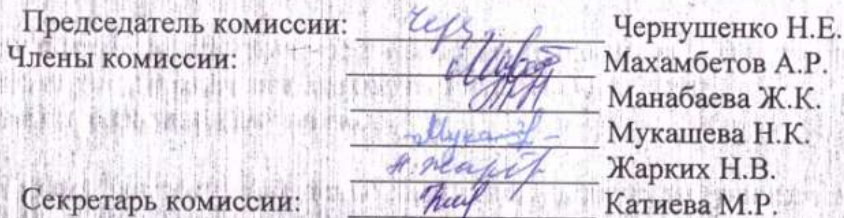 Председатель комиссии: Чернушенко Н.Е.
Члены комиссии: Махамбетов А.Р.
Манабаева Ж.К.
Мукашева Н.К.
Н. Жарк Жарких Н.В.
Секретарь комиссии: Катиева М.Р